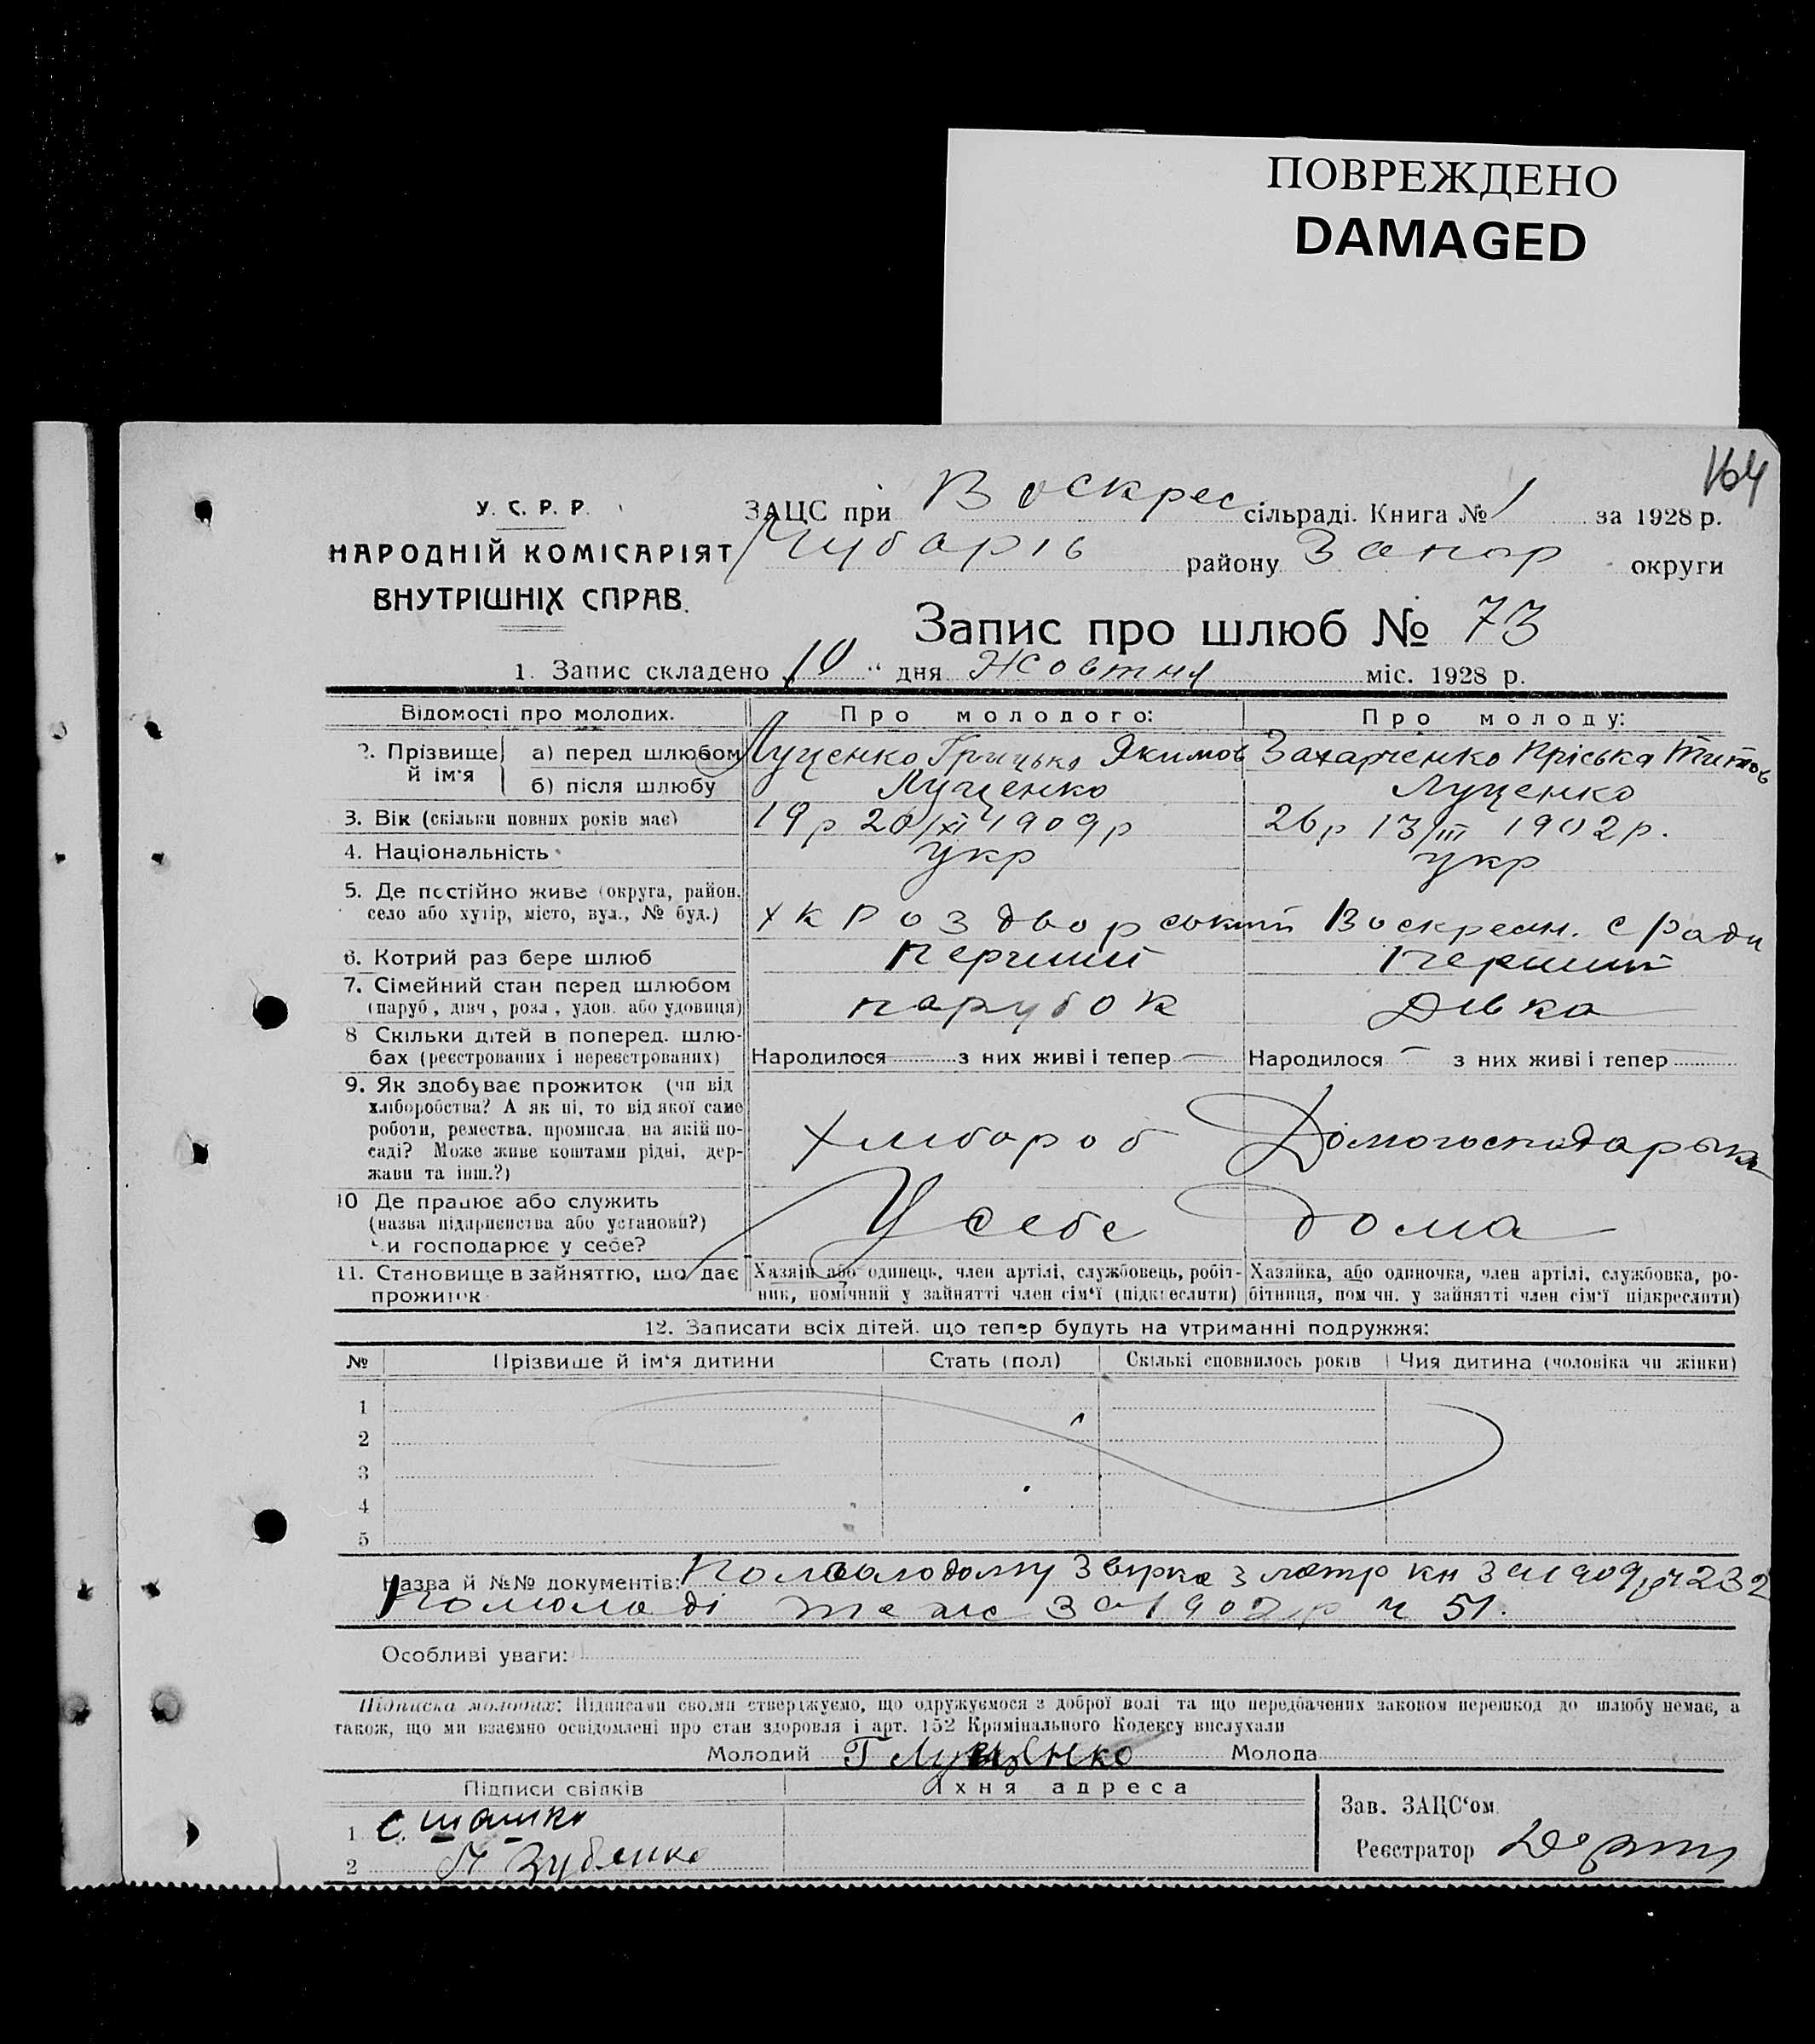 ПОВРЕЖДЕНО
DAMAGED
164
У. С. Р. Р.
НАРОДНІЙ КОМІСАРІЯТ
ВНУТРІШНІХ СПРАВ.
ЗАЦС при Воскрес сільраді. Книга № 1 за 1928 р.
Чубарів району Запор округи
Запис про шлюб № 73
1. Запис складено 10 " дня Жовтня міс. 1928 р.
Відомості про молодих. Про молодого: Про молоду:
2. Прізвище й ім'я а) перед шлюбом Луценко Грицько Якимов Захарченко Пріська Титов
б) після шлюбу Луценко Луценко
3. Вік (скільки повних років має) 19 р 20/XI 1909 р 26 р 13/III 1902 р.
4. Національність укр укр
5. Де постійно живе (округа, район, село або хутір, місто, вул., № буд.) х Кроздворський Воскресен. с ради
6. Котрий раз бере шлюб Перший Перший
7. Сімейний стан перед шлюбом (паруб, дівч, розл, удов. або удовиця) парубок Дівка
8 Скільки дітей в поперед. шлюбах (реєстрованих і нереєстрованих) Народилося з них живі і тепер — Народилося — з них живі і тепер
9. Як здобуває прожиток (чи від
хліборобства? А як ні, то від якої саме
роботи, ремества, промисла на якій по-
саді? Може живе коштами рідні, дер-
жави та інш.?) Хлібороб Домогосподарька
10 Де працює або служить
(назва підприємства або установи?)
Чи господарює у себе? У себе дома
11. Становище в зайняттю, що дає прожиток
Хазяїн або одинець, член артілі, службовець, робіт-
ник, помічний у зайнятті член сім'ї (підкреслити)
Хазяйка, або одиночка, член артілі, службовка, ро-
бітниця, помічн. у зайнятті член сім'ї підкреслити)
12. Записати всіх дітей, що тепер будуть на утриманні подружжя:
№ Прізвище й ім'я дитини Стать (пол) Скількі сповнилось років Чия дитина (чоловіка чи жінки)
1
2
3
4
5
Назва й №№ документів: По молодому Звирка з метр кн за 1909 р ч 232
По молоді теж за 1902 р ч 51.
Особливі уваги:
Підписка молодих: Підписами своїми стверджуємо, що одружуємося з доброї волі та що передбачених законом перешкод до шлюбу немає, а
також, що ми взаємно освідомлені про стан здоровля і арт. 152 Кримінального Кодексу вислухали
Молодий Г Луценко Молода
Підписи свідків Їхня адреса
1 С. Шашко
2 Зубенко
Зав. ЗАЦС'ом
Реєстратор